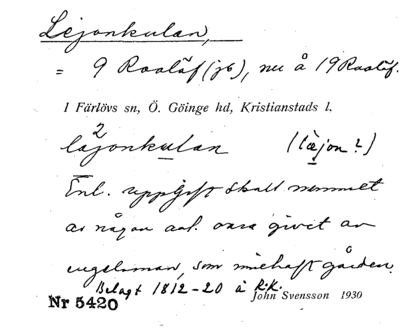 Lejonkulan,
= 9 Roalöf (jb), nu å 19 Roalöf.
I Färlövs sn, Ö. Göinge hd, Kristianstads l.
lajonkulan (læjon?)
Enl. uppgift skall namnet
av någon anl. vara givet av
en, som innehaft gården.
Belagt 1812-20 å R.K.
Nr 5420 John Svensson 1930